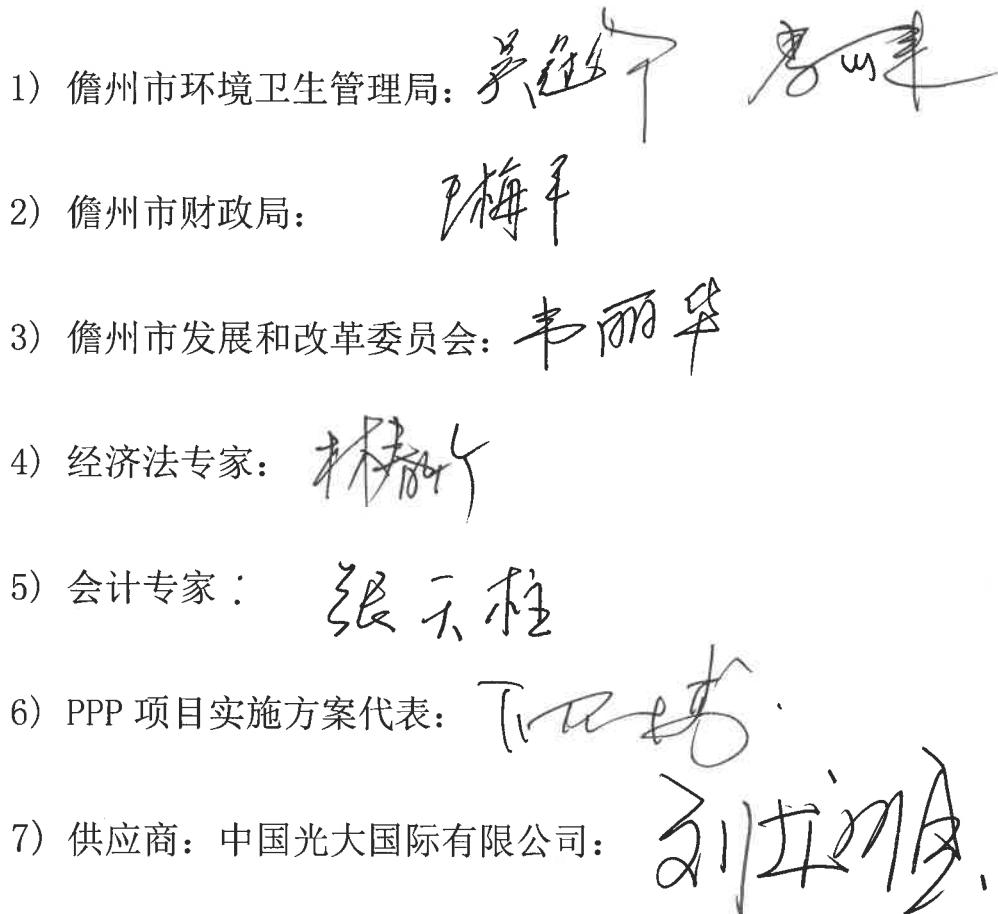 1) 儋州市环境卫生管理局:
2) 儋州市财政局:
3) 儋州市发展和改革委员会: 韦丽华
4) 经济法专家:
5) 会计专家: 张天柱
6) PPP 项目实施方案代表:
7) 供应商: 中国光大国际有限公司: